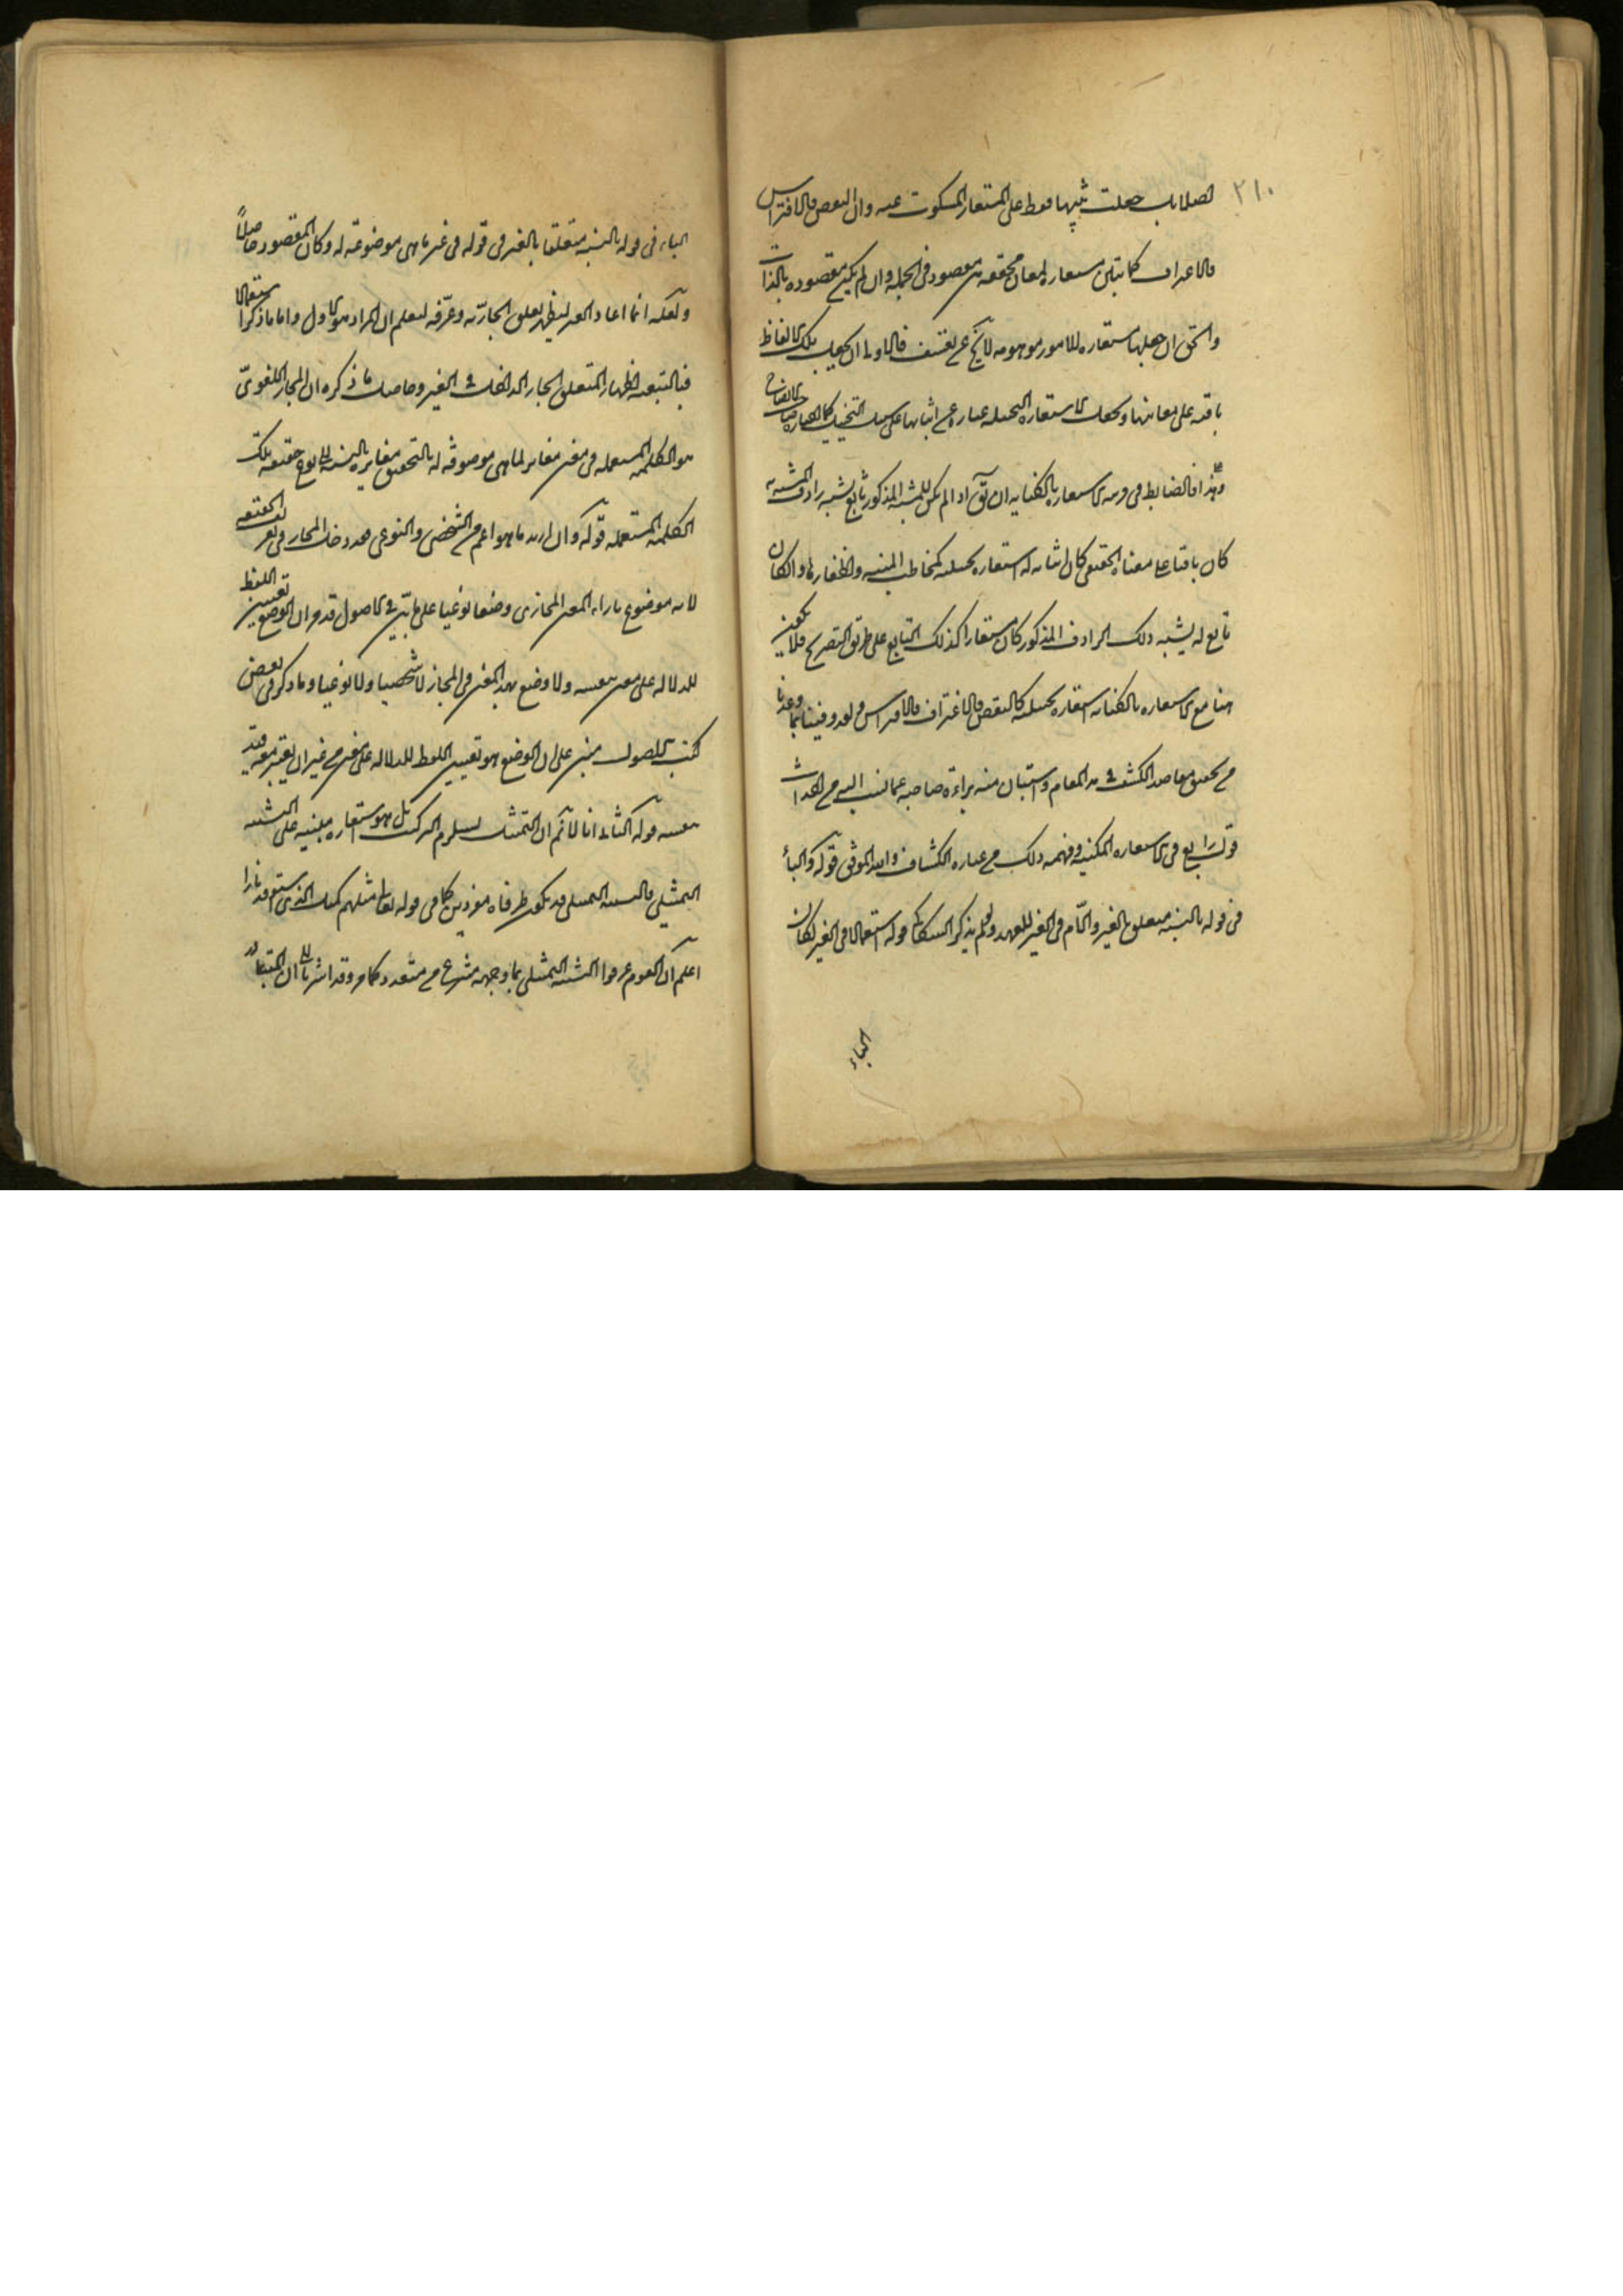 ٢١٠
جعلت تنبيها فقط على المستعار المسكوت عنه وان النقض والافتراس
والاغتراف كما تبين مستعارة لمعان محققة مقصودة في الجملة وان لم يكن مقصودة بالذات
والحق ان جعلها مستعارة للامور موهومة لا يخ عن تعسف فالاولى ان يجعل تلك الالفاظ
باقية على معانيها ويجعل الاستعارة التخييلية عبارة عن اثباتها على سبيل التخييل كما اختاره صاحب الايضاح
وعلى هذا فالضابط في قرينة الاستعارة بالكناية ان يق اذا لم يكن للمشبه المذكور تابع يشبه رادف المشبه به
كان باقيا على معناه الحقيقي وكان اثباته له استعارة تخييلية كمخالب المنية واظفارها وان كان
تابع له يشبه ذلك الرادف المذكور كان مستعارا كذلك التابع على طريق التصريح فلا يكون
هنا مع الاستعارة بالكناية استعارة تخييلية كالنقض والاغتراف والافتراس ولقد وفينا بما وعدنا
من تحقيق مقاصد الكشف في هذا المقام واستبان منه براءة صاحبه عما نسب اليه من احداث
قول رابع في الاستعارة المكنية وفهمه ذلك من عبارة الكشاف والله الموفق قوله والباء
في قوله بالنسبة متعلق بالغير واللام في الغير للعهد ولو لم يذكر السكاكي قوله استعمالا في الغير لكان
الباء
الباء في قوله بالنسبة متعلقا بالغير في قوله في غير ما هي موضوعة له وكان المقصود حاصلاً
ولكنه انما اعاد الغير ليظهر تعلق الجار به وعرّفه ليعلم ان المراد هو الاول واما ما ذكر استعمالا
فبالتبعية لاظهار المتعلق الجار الداخلة في الغير وحاصل ما ذكره ان المجاز اللغويّ
هو الكلمة المستعملة في معنى مغاير لما هي موضوعة له بالتحقيق مغايرة بالنسبة الى نوع حقيقة تلك
الكلمة المستعملة قوله وان اريد ما هو اعم من الشخصي والنوعي فقد دخل المجاز في تعريف الحقيقة
لانه موضوع بازاء المعنى المجازي وضعا نوعيا على ما بين في الاصول قد مر ان الوضع تعيين اللفظ
للدلالة على معنى بنفسه ولا وضع بهذا المعنى في المجاز لا شخصيا ولا نوعيا وما ذكر في بعض
كتب الاصول مبني على ان الوضع هو تعيين اللفظ للدلالة على معنى من غير ان يعتبر معه قيد
بنفسه قوله الثاني انا لا نم ان التمثيل يستلزم التركيب بل هو استعارة مبنية على التشبيه
التمثيلي والتشبيه التمثيلي قد يكون طرفاه مفردين كما في قوله تعالى مثلهم كمثل الذي استوقد نارا
اعلم ان القوم عرفوا التشبيه التمثيلي بما وجهه منتزع من متعدد كما مر وقد اشرنا الى ان المتبادر